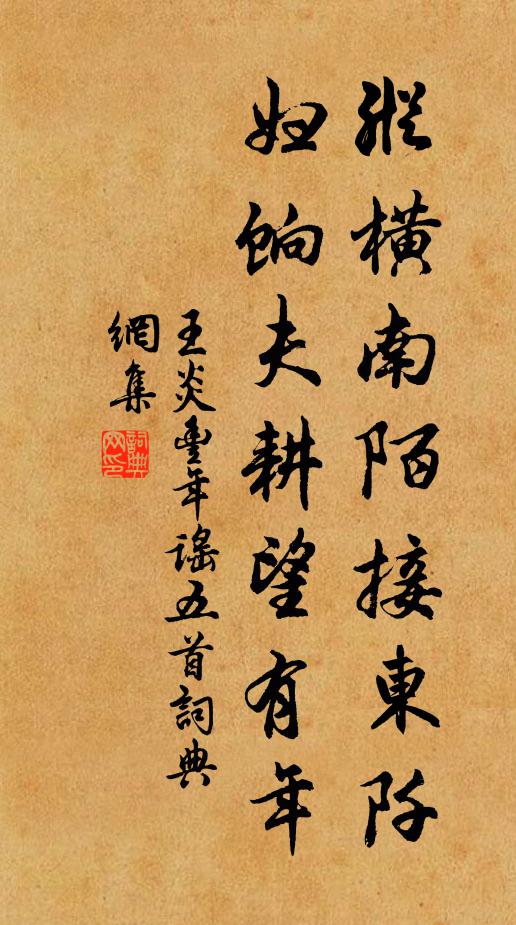 縱橫南陌接東阡
婦餉夫耕望有年
王炎豐年謠五首詞典
網集
詞典
网印